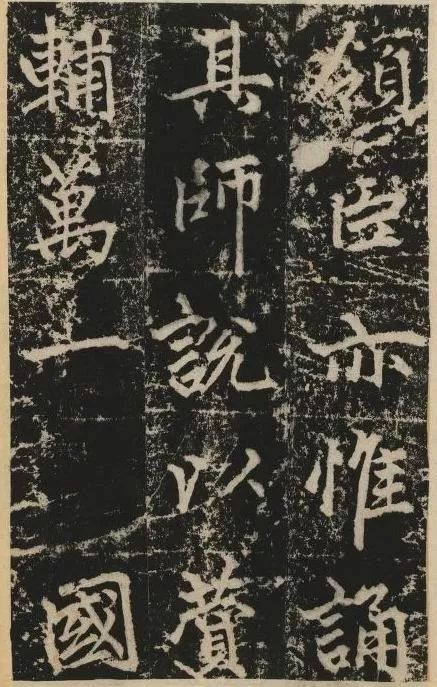 領臣亦惟誦
其師說以賛
輔萬一國